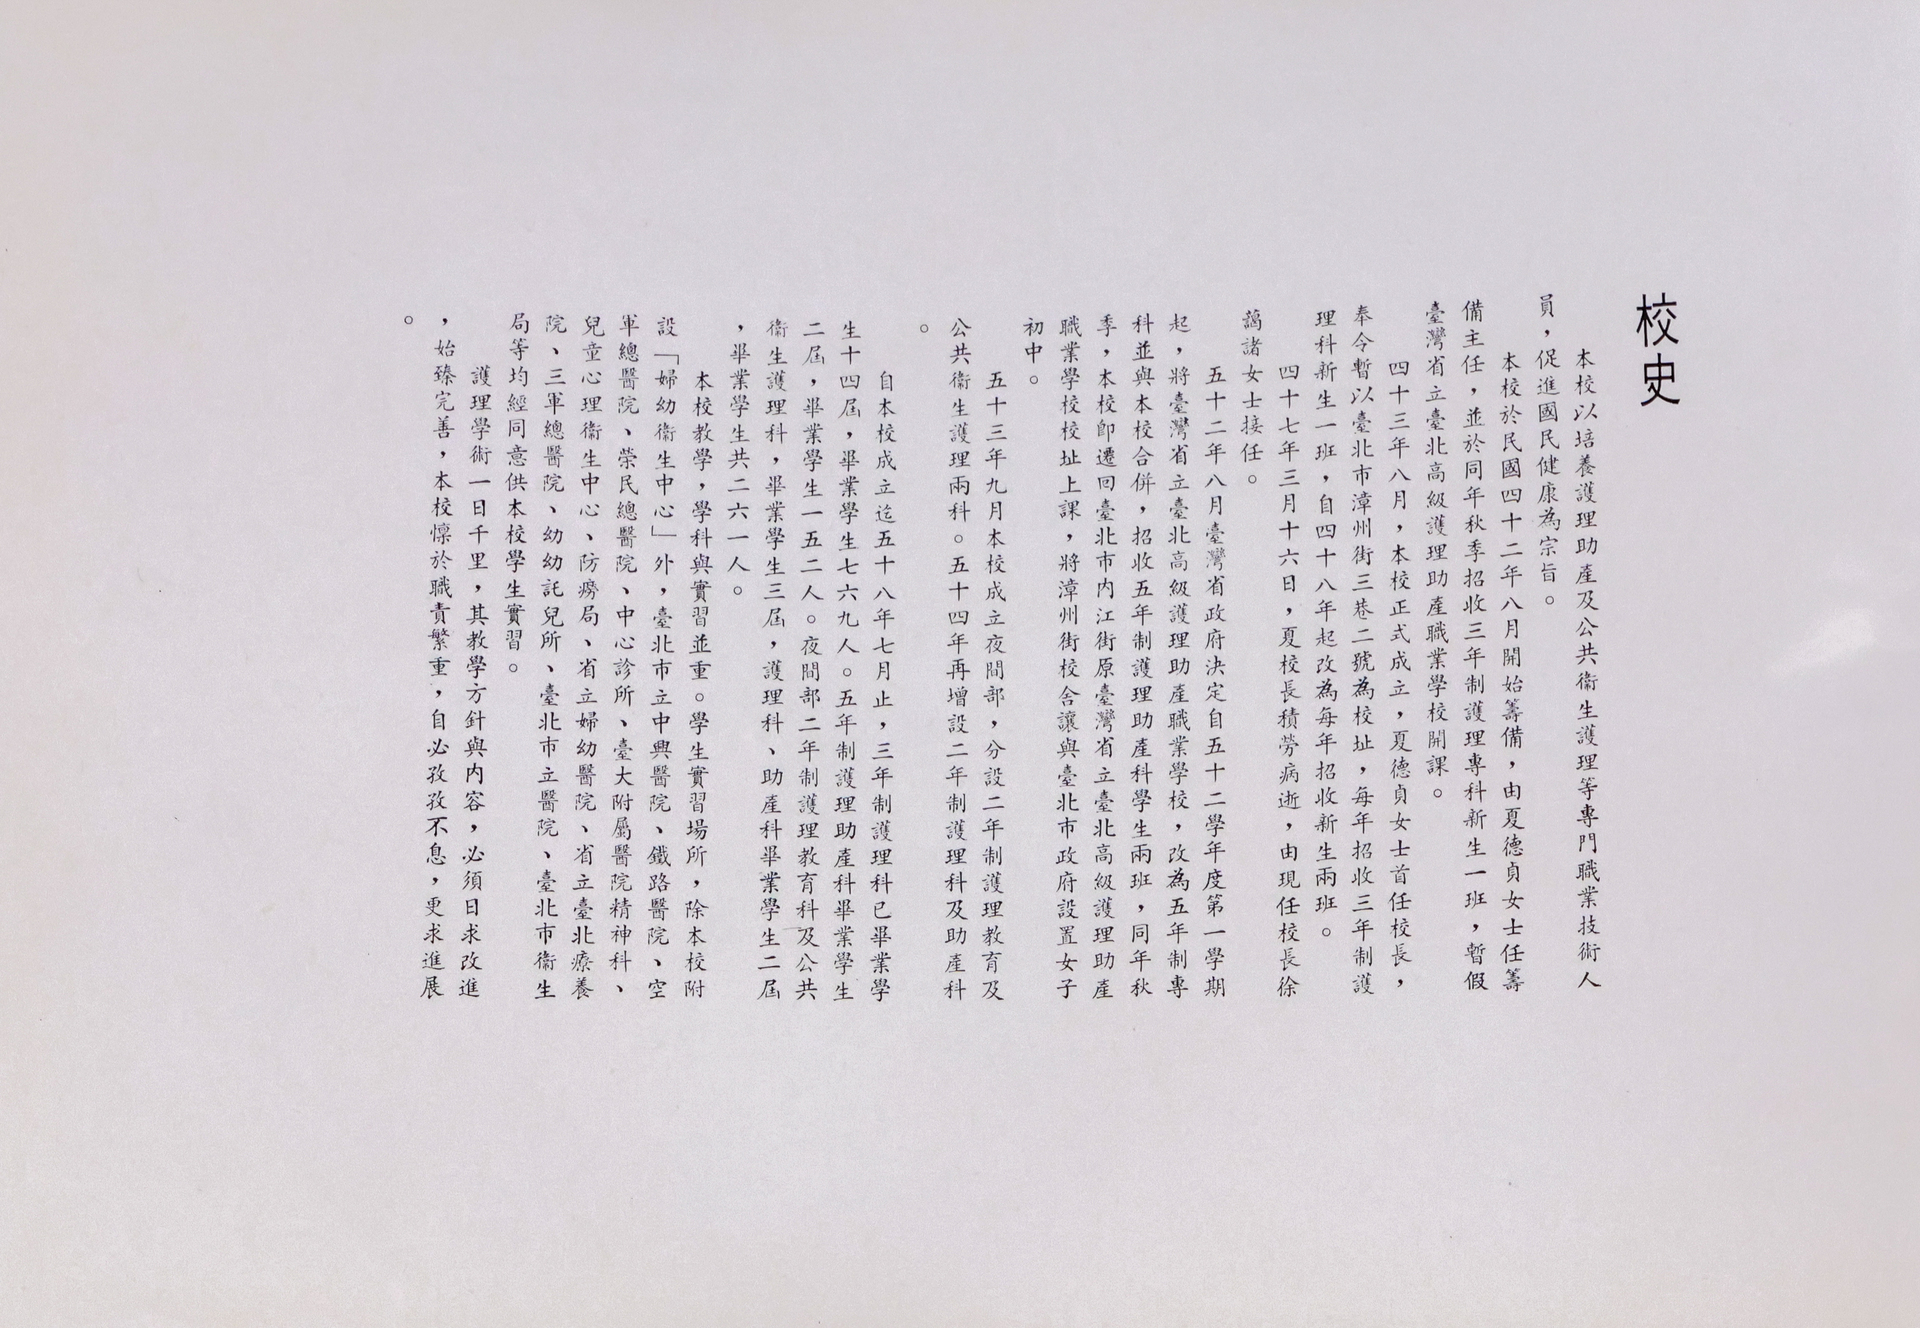 校史
本校以培養護理助產及公共衞生護理等專門職業技術人
員，促進國民健康為宗旨。
本校於民國四十二年八月開始籌備，由夏德貞女士任籌
備主任，並於同年秋季招收三年制護理專科新生一班，暫假
臺灣省立臺北高級護理助產職業學校開課。
四十三年八月，本校正式成立，夏德貞女士首任校長，
奉令暫以臺北市漳州街三巷二號為校址，每年招收三年制護
理科新生一班，自四十八年起改為每年招收新生兩班。
四十七年三月十六日，夏校長積勞病逝，由現任校長徐
藹諸女士接任。
五十二年八月臺灣省政府決定自五十二學年度第一學期
起，將臺灣省立臺北高級護理助產職業學校，改為五年制專
科並與本校合併，招收五年制護理助產科學生兩班，同年秋
季，本校即遷回臺北市內江街原臺灣省立臺北高級護理助產
職業學校校址上課，將漳州街校舍讓與臺北市政府設置女子
初中。
五十三年九月本校成立夜間部，分設二年制護理教育及
公共衞生護理兩科。五十四年再增設二年制護理科及助產科
。
自本校成立迄五十八年七月止，三年制護理科已畢業學
生十四屆，畢業學生七六九人。五年制護理助產科畢業學生
二屆，畢業學生一五二人。夜間部二年制護理教育科及公共
衞生護理科，畢業學生三屆，護理科、助產科畢業學生二屆
，畢業學生共二六一人。
本校教學，學科與實習並重。學生實習場所，除本校附
設「婦幼衞生中心」外，臺北市立中興醫院、鐵路醫院、空
軍總醫院、榮民總醫院、中心診所、臺大附屬醫院精神科、
兒童心理衞生中心、防癆局、省立婦幼醫院、省立臺北療養
院、三軍總醫院、幼幼託兒所、臺北市立醫院、臺北市衞生
局等均經同意供本校學生實習。
護理學術一日千里，其教學方針與內容，必須日求改進
，始臻完善，本校懍於職責繁重，自必孜孜不息，更求進展
。